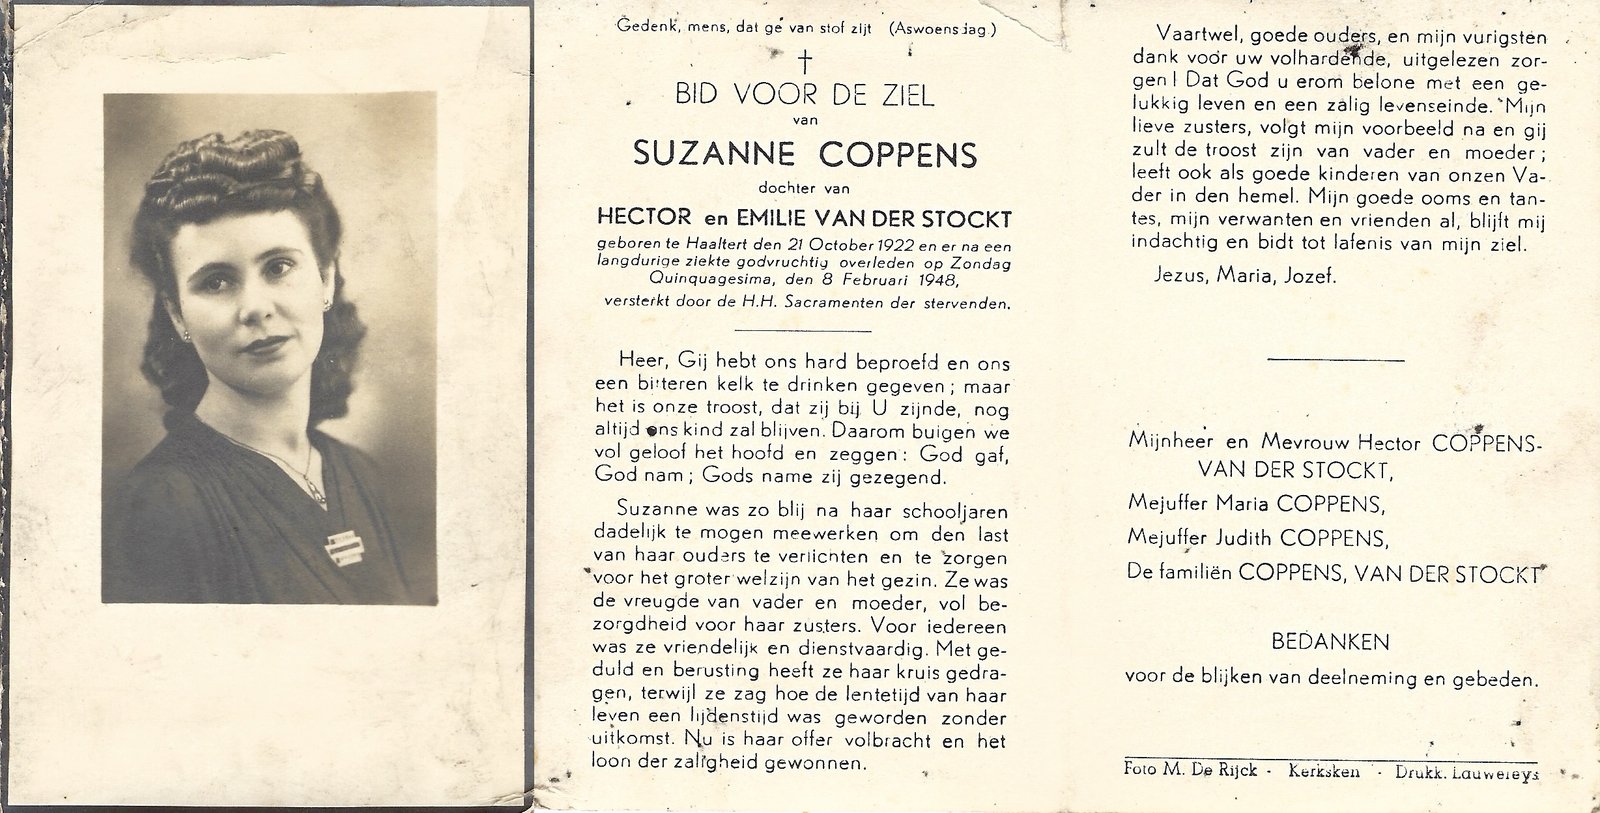 Gedenk, mens, dat ge van stof zijt (Aswoensdag.)
BID VOOR DE ZIEL
van
SUZANNE COPPENS
dochter van
HECTOR en EMILIE VAN DER STOCKT
geboren te Haaltert den 21 October 1922 en er na een
langdurige ziekte godvruchtig overleden op Zondag
Quinquagesima, den 8 Februari 1948,
versterkt door de H.H. Sacramenten der stervenden.
Heer, Gij hebt ons hard beproefd en ons
een bitteren kelk te drinken gegeven; maar
het is onze troost, dat zij bij U zijnde, nog
altijd ons kind zal blijven. Daarom buigen we
vol geloof het hoofd en zeggen: God gaf,
God nam; Gods name zij gezegend.
Suzanne was zo blij na haar schooljaren
dadelijk te mogen meewerken om den last
van haar ouders te verlichten en te zorgen
voor het groter welzijn van het gezin. Ze was
de vreugde van vader en moeder, vol be-
zorgdheid voor haar zusters. Voor iedereen
was ze vriendelijk en dienstvaardig. Met ge-
duld en berusting heeft ze haar kruis gedra-
gen, terwijl ze zag hoe de lentetijd van haar
leven een lijdenstijd was geworden zonder
uitkomst. Nu is haar offer volbracht en het
loon der zaligheid gewonnen.
Vaartwel, goede ouders, en mijn vurigsten
dank voor uw volhardende, uitgelezen zor-
gen! Dat God u erom belone met een ge-
lukkig leven en een zalig levenseinde. Mijn
lieve zusters, volgt mijn voorbeeld na en gij
zult de troost zijn van vader en moeder;
leeft ook als goede kinderen van onzen Va-
der in den hemel. Mijn goede ooms en tan-
tes, mijn verwanten en vrienden al, blijft mij
indachtig en bidt tot lafenis van mijn ziel.
Jezus, Maria, Jozef.
Mijnheer en Mevrouw Hector COPPENS-
VAN DER STOCKT,
Mejuffer Maria COPPENS,
Mejuffer Judith COPPENS,
De familiën COPPENS, VAN DER STOCKT
BEDANKEN
voor de blijken van deelneming en gebeden.
Foto M. De Rijck - Kerksken - Drukk. Lauwereys